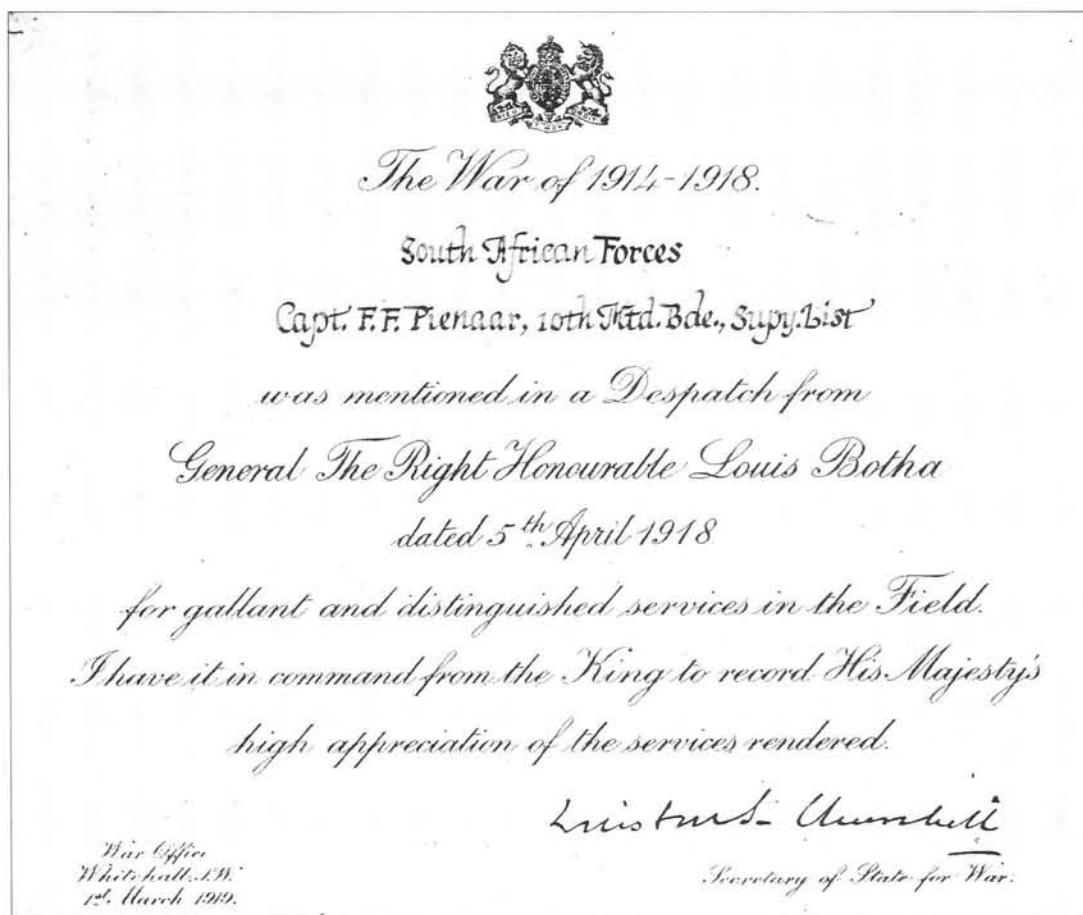 The War of 1914-1918.
South African Forces
Capt. F.F. Pienaar, 10th Mtd. Bde., Supy. List
was mentioned in a Despatch from
General The Right Honourable Louis Botha
dated 5th April 1918
for gallant and distinguished services in the Field.
I have it in command from the King to record His Majesty's
high appreciation of the services rendered.
Winston S. Churchill
War Office
Whitehall, S.W.
1st March 1919.
Secretary of State for War.